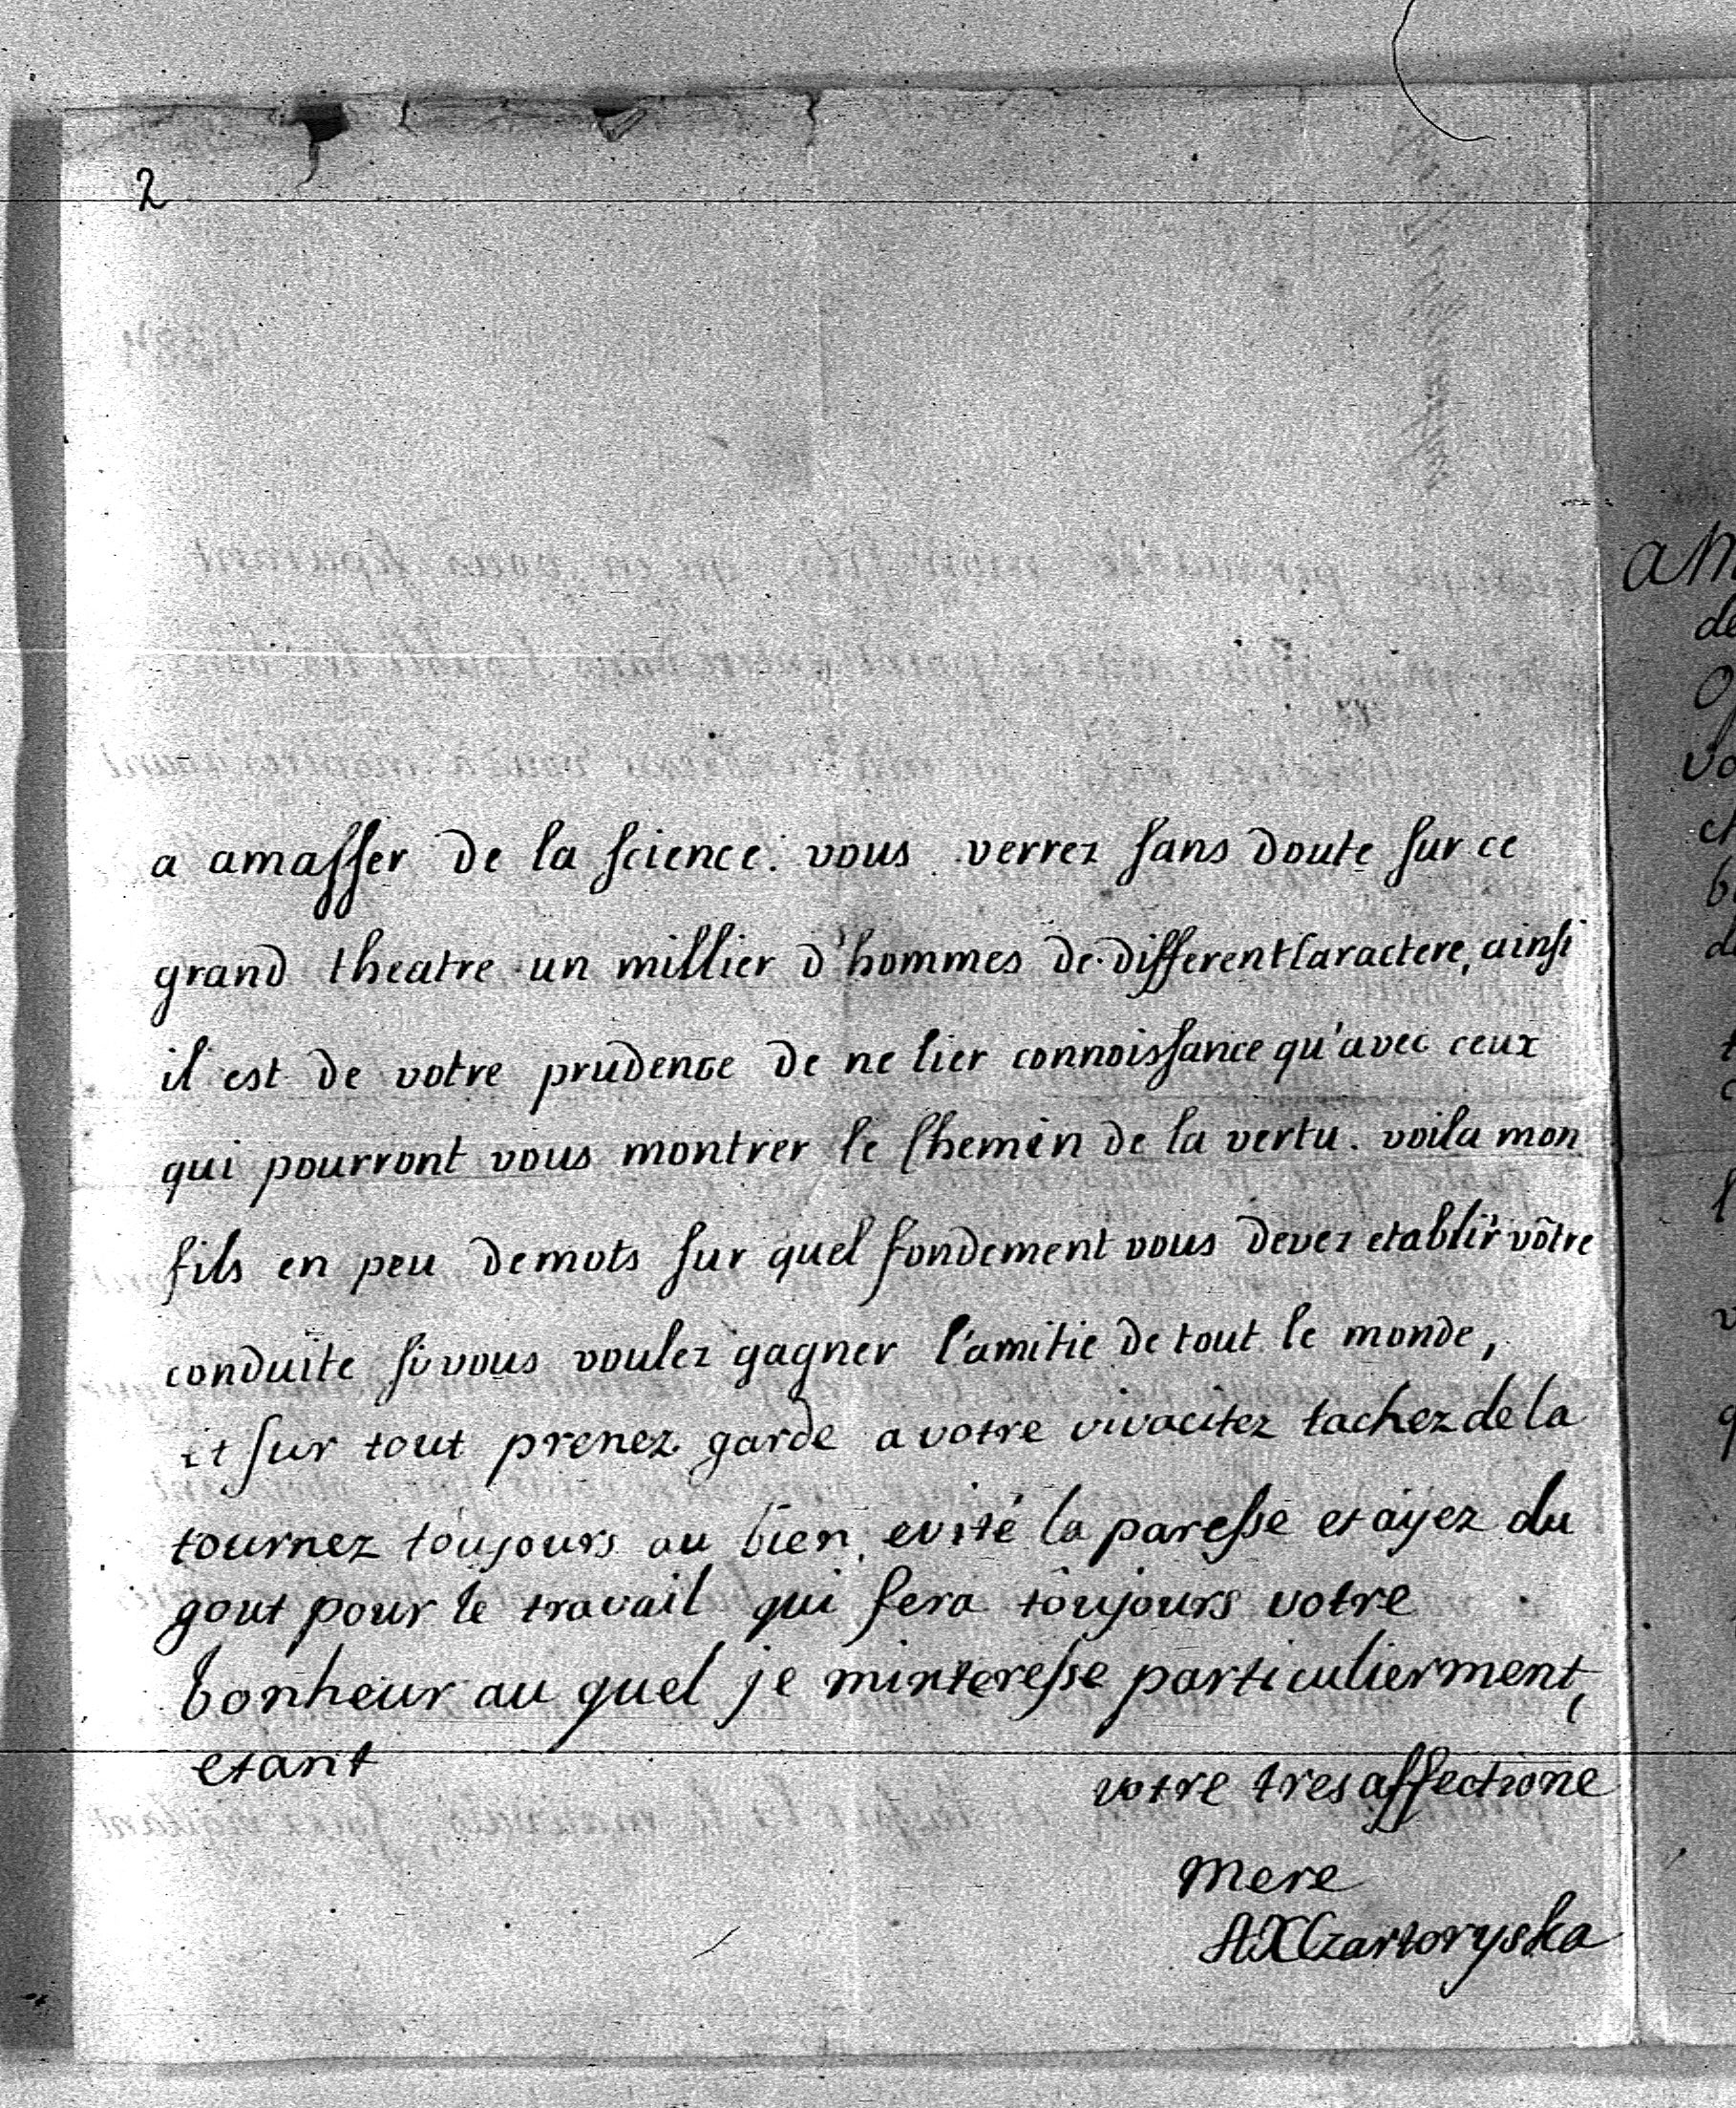 2
a amasser de la science. vous verrez sans doute sur ce
grand theatre un millier d'hommes de different Caractere, ainsi
il est de votre prudence de ne lier connoissance qu'avec ceux
qui pourront vous montrer le Chemin de la vertu. voila mon
fils en peu demots sur quel fondement vous devez etablir vôtre
conduite si vous voulez gagner l'amitie de tout le monde,
et sur tout prenez garde a votre vivacitez tachez de la
tournez toujours au bien, evité la paresse et ayez du
gout pour le travail qui fera toujours votre
bonheur au quel je minteresse particulierment,
etant
votre tres affectione
mere
AXCzartoryska